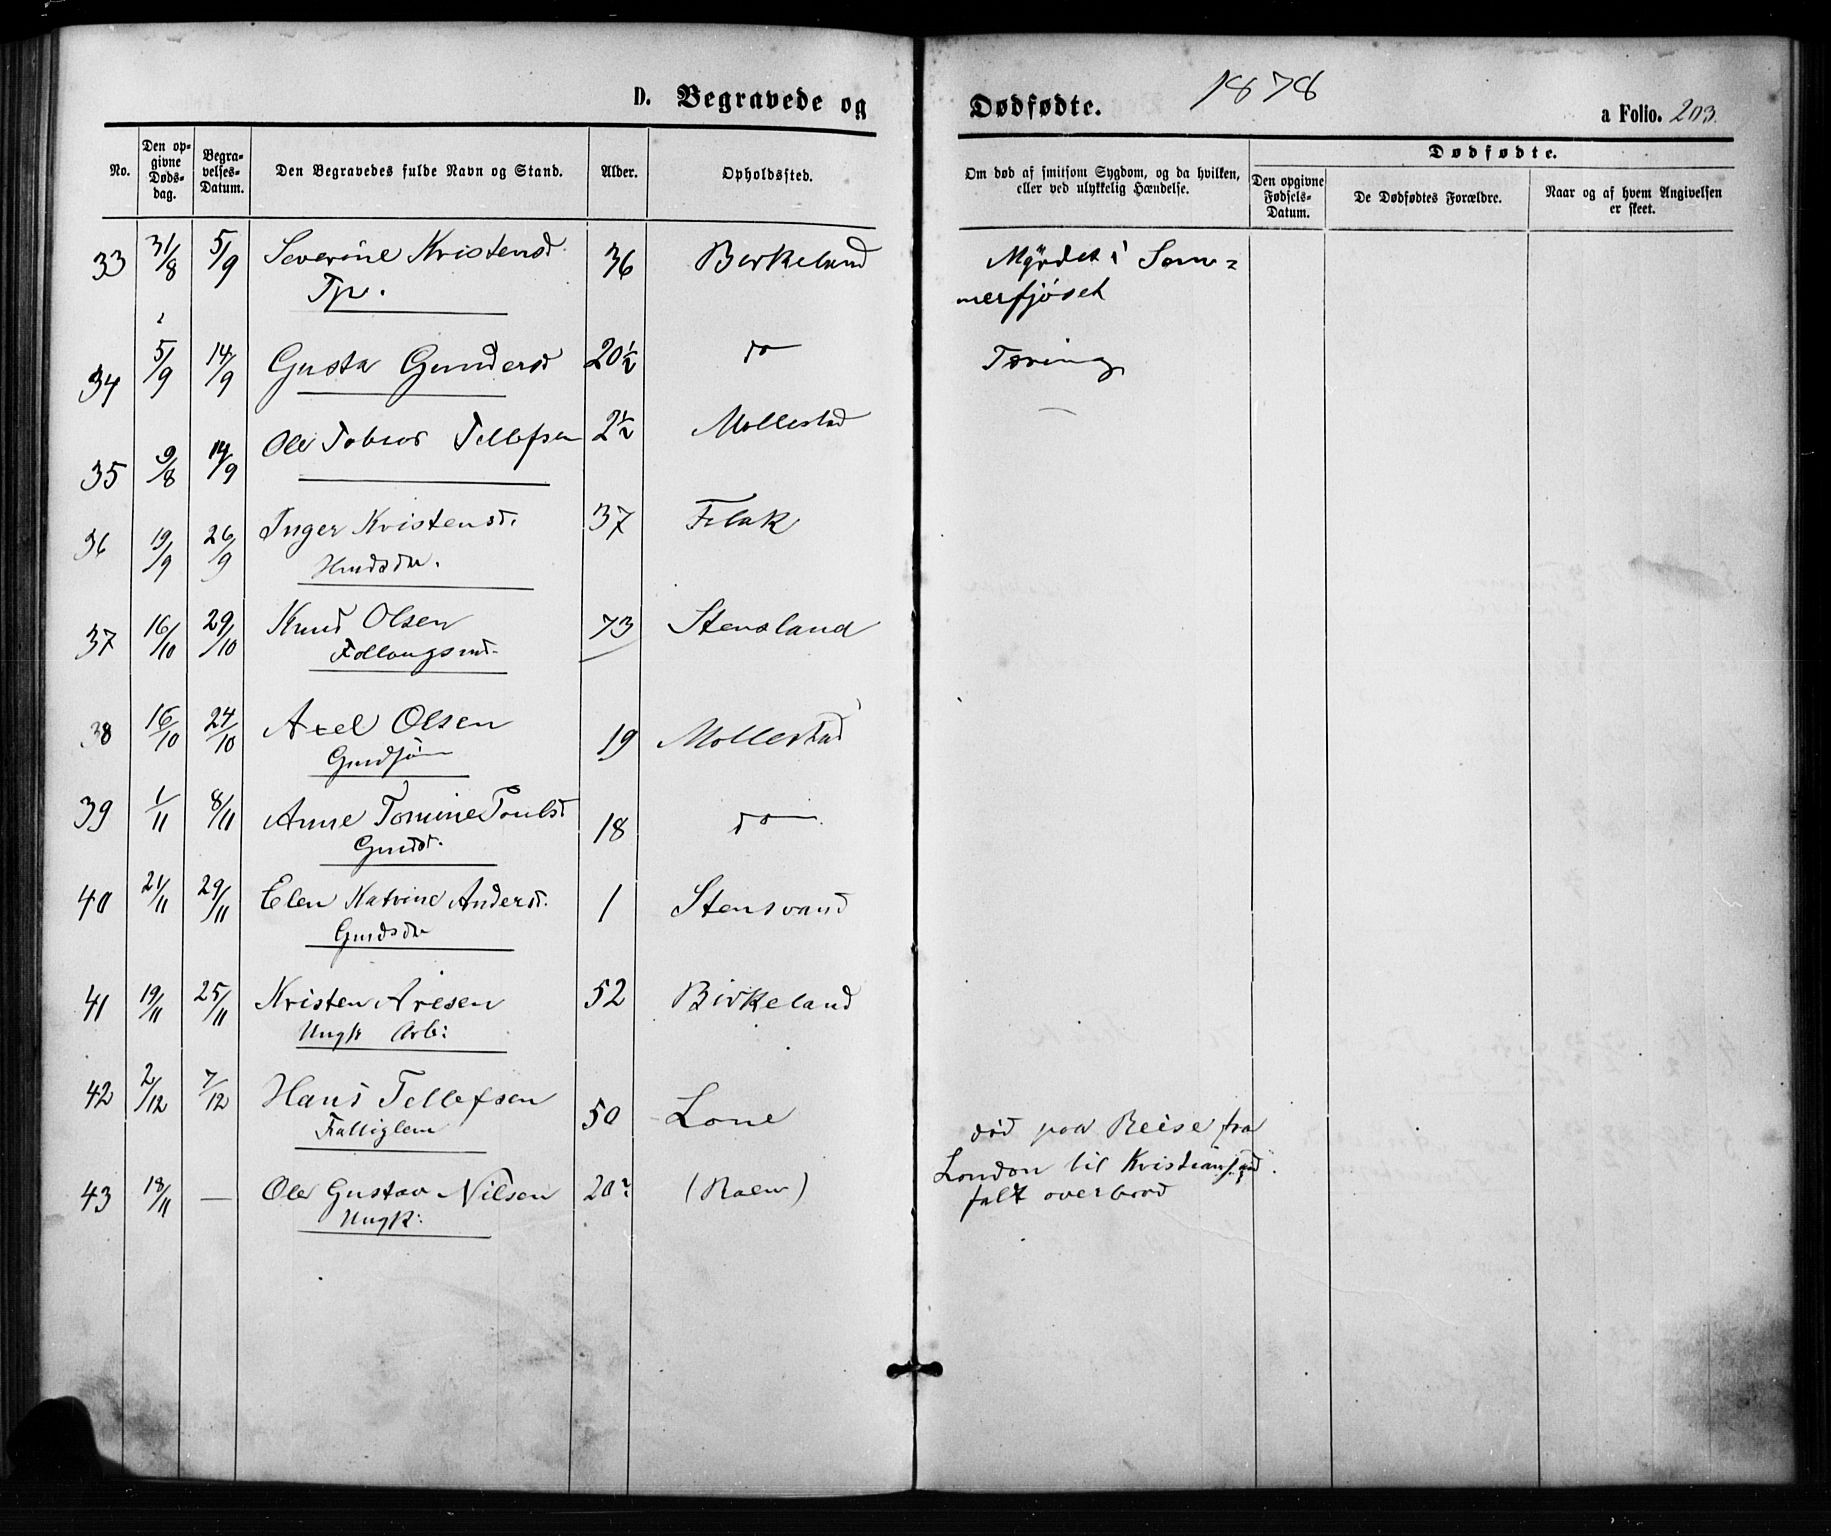 D. Begravede og
Dødfødte.
1878
a Folio. 203.
No.
Den opgivne Dødsdag.
Begravelses-Datum.
Den Begravedes fulde Navn og Stand.
Alder.
Opholdssted.
Om død af smitsom Sygdom, og da hvilken,
eller ved ulykkelig Hændelse.
Dødfødte.
Den opgivne Fødsels-Datum.
De Dødfødtes Forældre.
Naar og af hvem Angivelsen
er skeet.
33 31/8 5/9 Severine Kristensd. 36 Birkeland Myrdet i Som-
merfjøset
34 5/9 14/9 Gusta Gundersd 20½ do Tæring
35 9/8 14/9 Ole Tobias Tellefsen 2½ Mollestad
36 19/9 26/9 Inger Kristensd. 37 Flak
37 16/10 29/10 Knud Olsen 73 Stensland
38 16/10 24/10 Axel Olsen 19 Mollestad
Gmdsøn
39 1/11 8/11 Anne Tomine Poulsd 18 do
Gmdst.
40 21/11 29/11 Elen Katrine Andersd. 1 Stensvand
Gmdsdtr
41 19/11 25/11 Kristen Aresen 52 Birkeland
Ungk Arb:
42 2/12 7/12 Hans Tellefsen 50 Lone
Fattiglem
43 18/11 — Ole Gustav Nilsen 20? død paa Reise fra
London til Kristiansand.
falt overbord
Ungk: